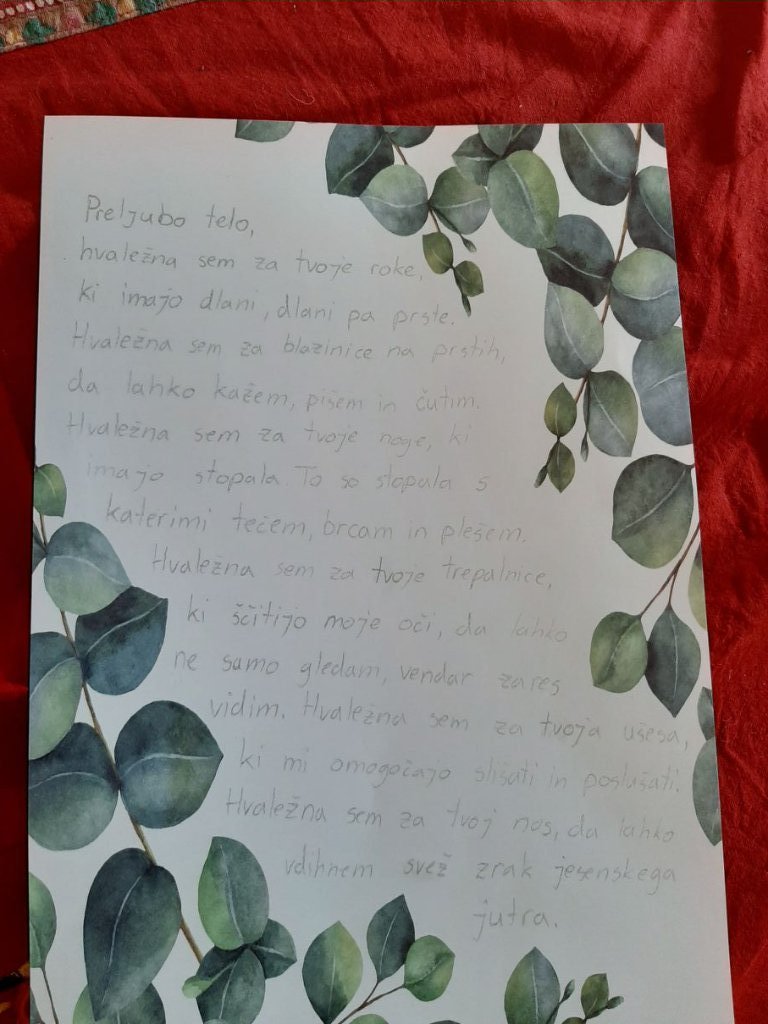 Preljubo telo,
hvaležna sem za tvoje roke,
ki imajo dlani, dlani pa prste.
Hvaležna sem za blazinice na prstih,
da lahko kažem, pišem in čutim.
Hvaležna sem za tvoje noge, ki
imajo stopala. To so stopala s
katerimi tečem, brcam in plešem.
Hvaležna sem za tvoje trepalnice,
ki ščitijo moje oči, da lahko
ne samo gledam, vendar zares
vidim. Hvaležna sem za tvoja ušesa,
ki mi omogočajo slišati in poslušati.
Hvaležna sem za tvoj nos, da lahko
vdihnem svež zrak jesenskega
jutra.